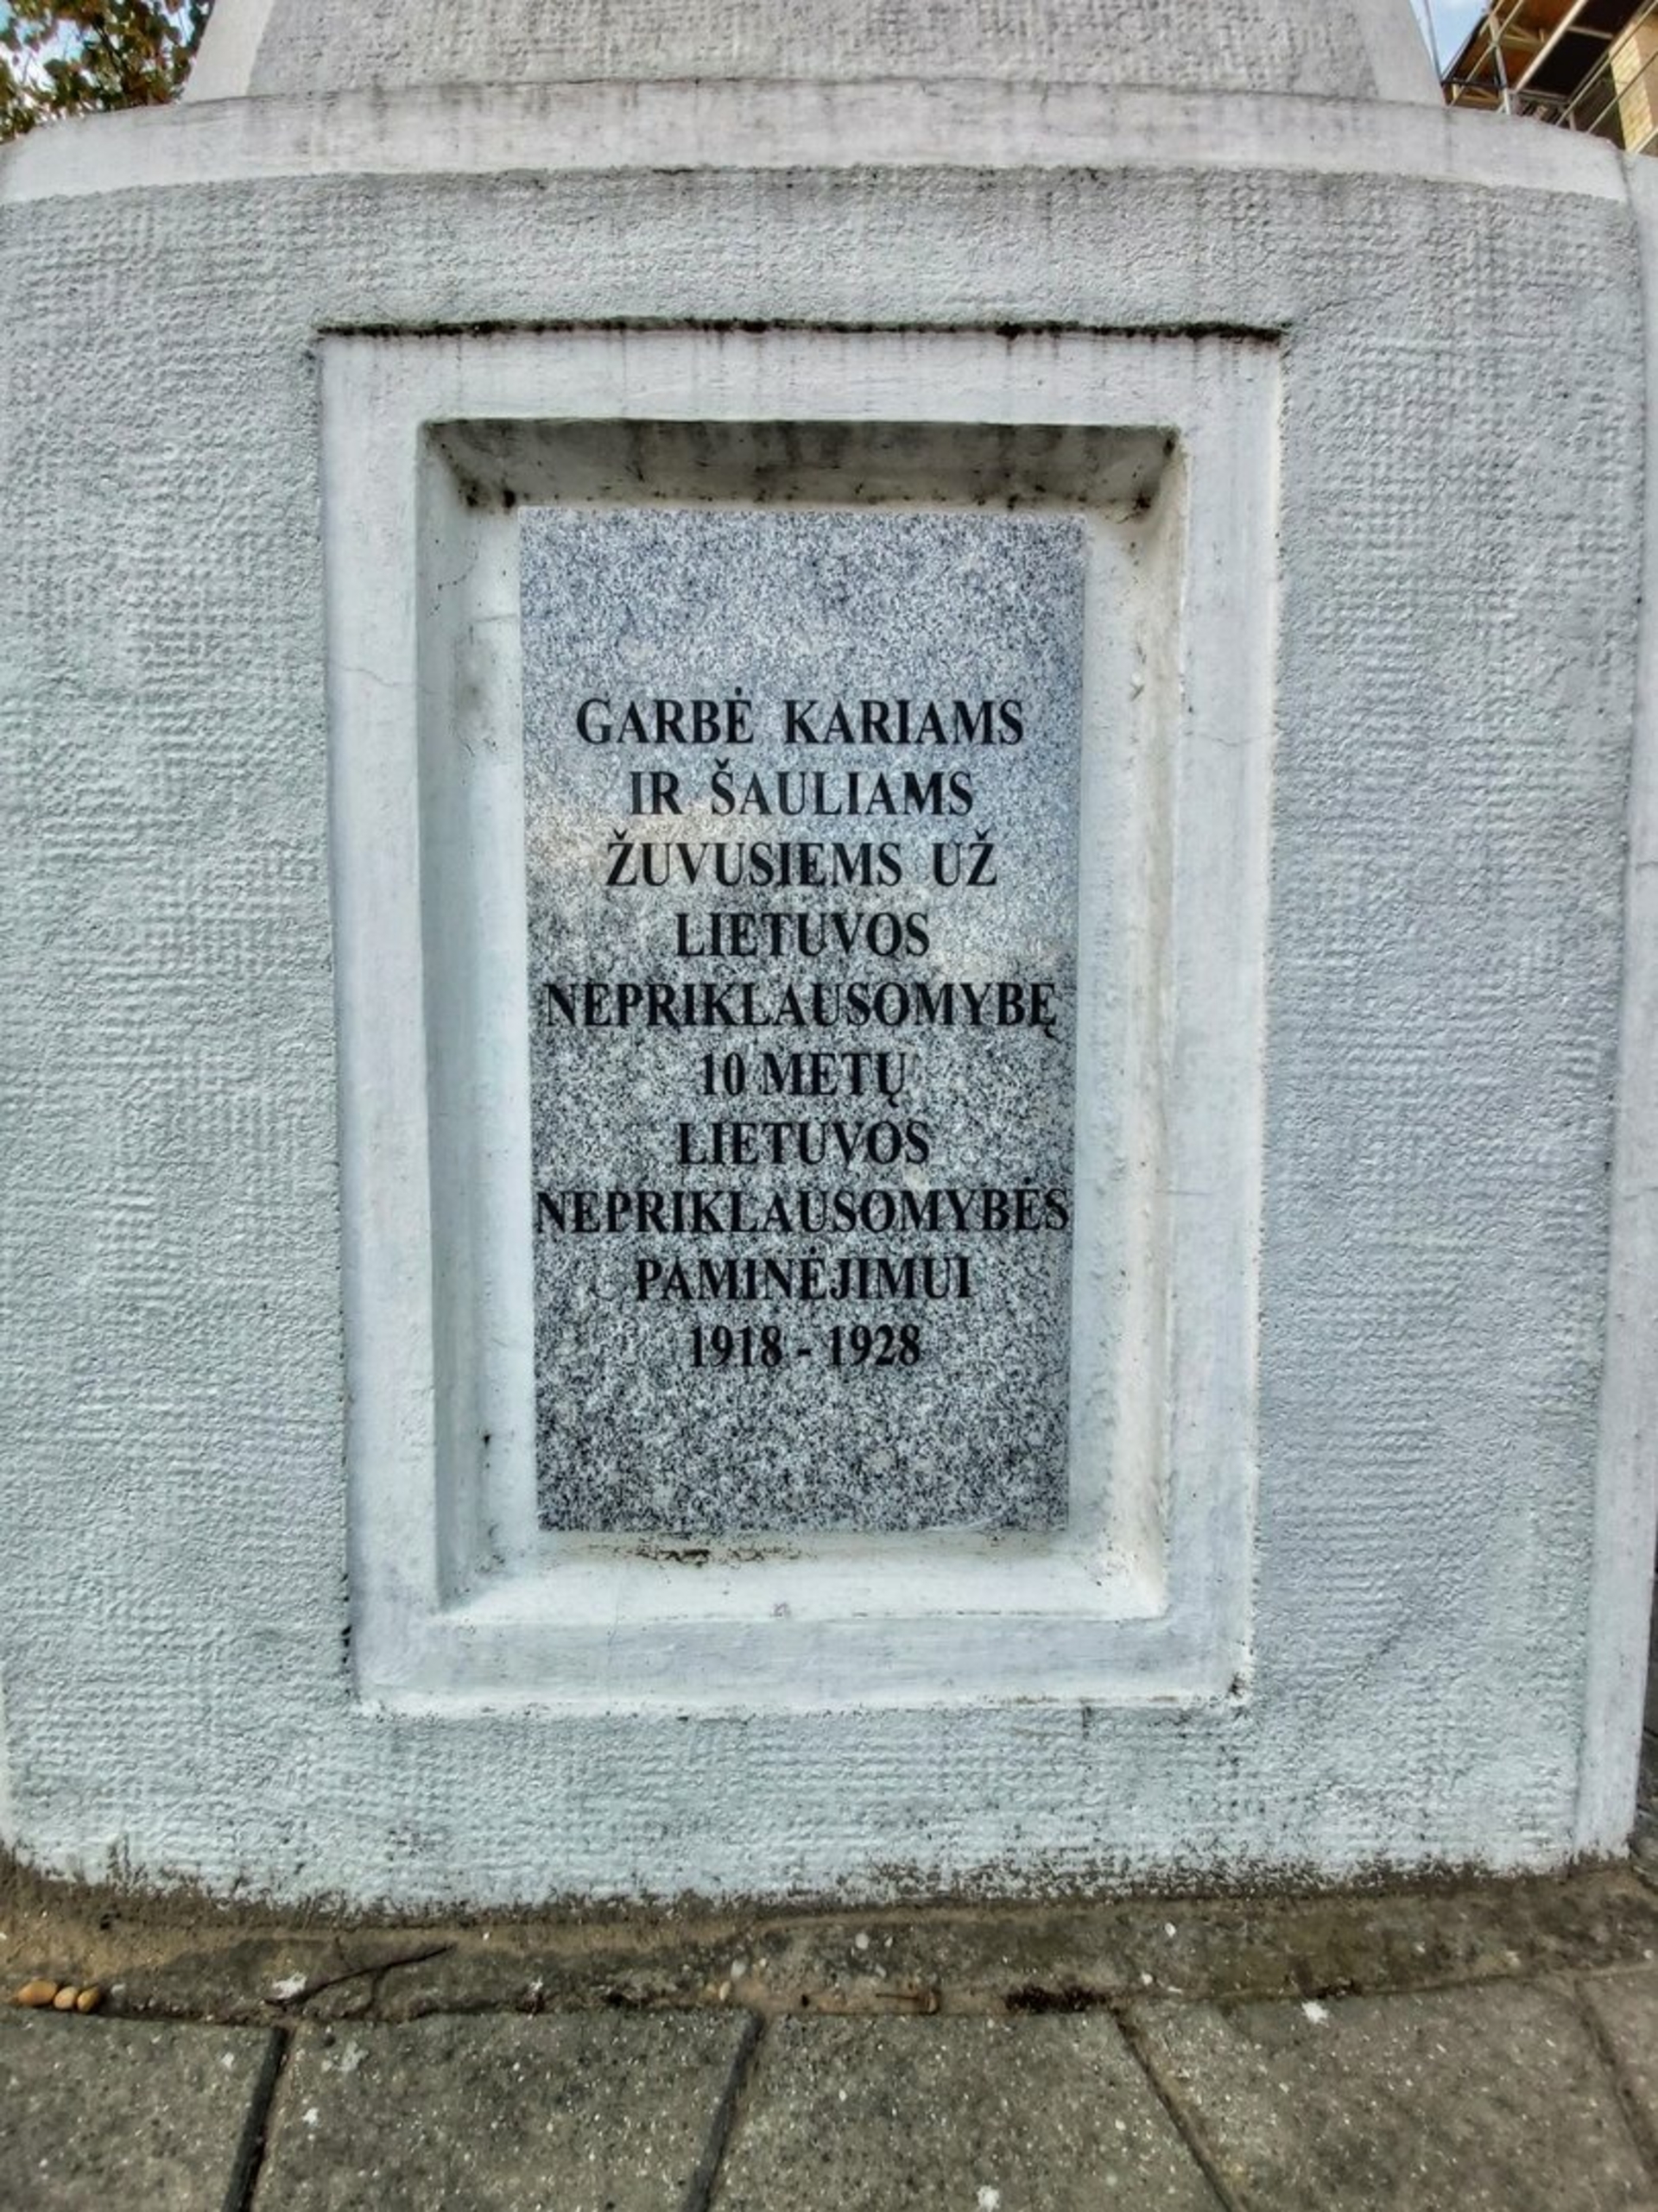 GARBĖ KARIAMS
IR ŠAULIAMS
ŽUVUSIEMS UŽ
LIETUVOS
NEPRIKLAUSOMYBĘ
10 METŲ
LIETUVOS
NEPRIKLAUSOMYBĖS
PAMINĖJIMUI
1918 - 1928